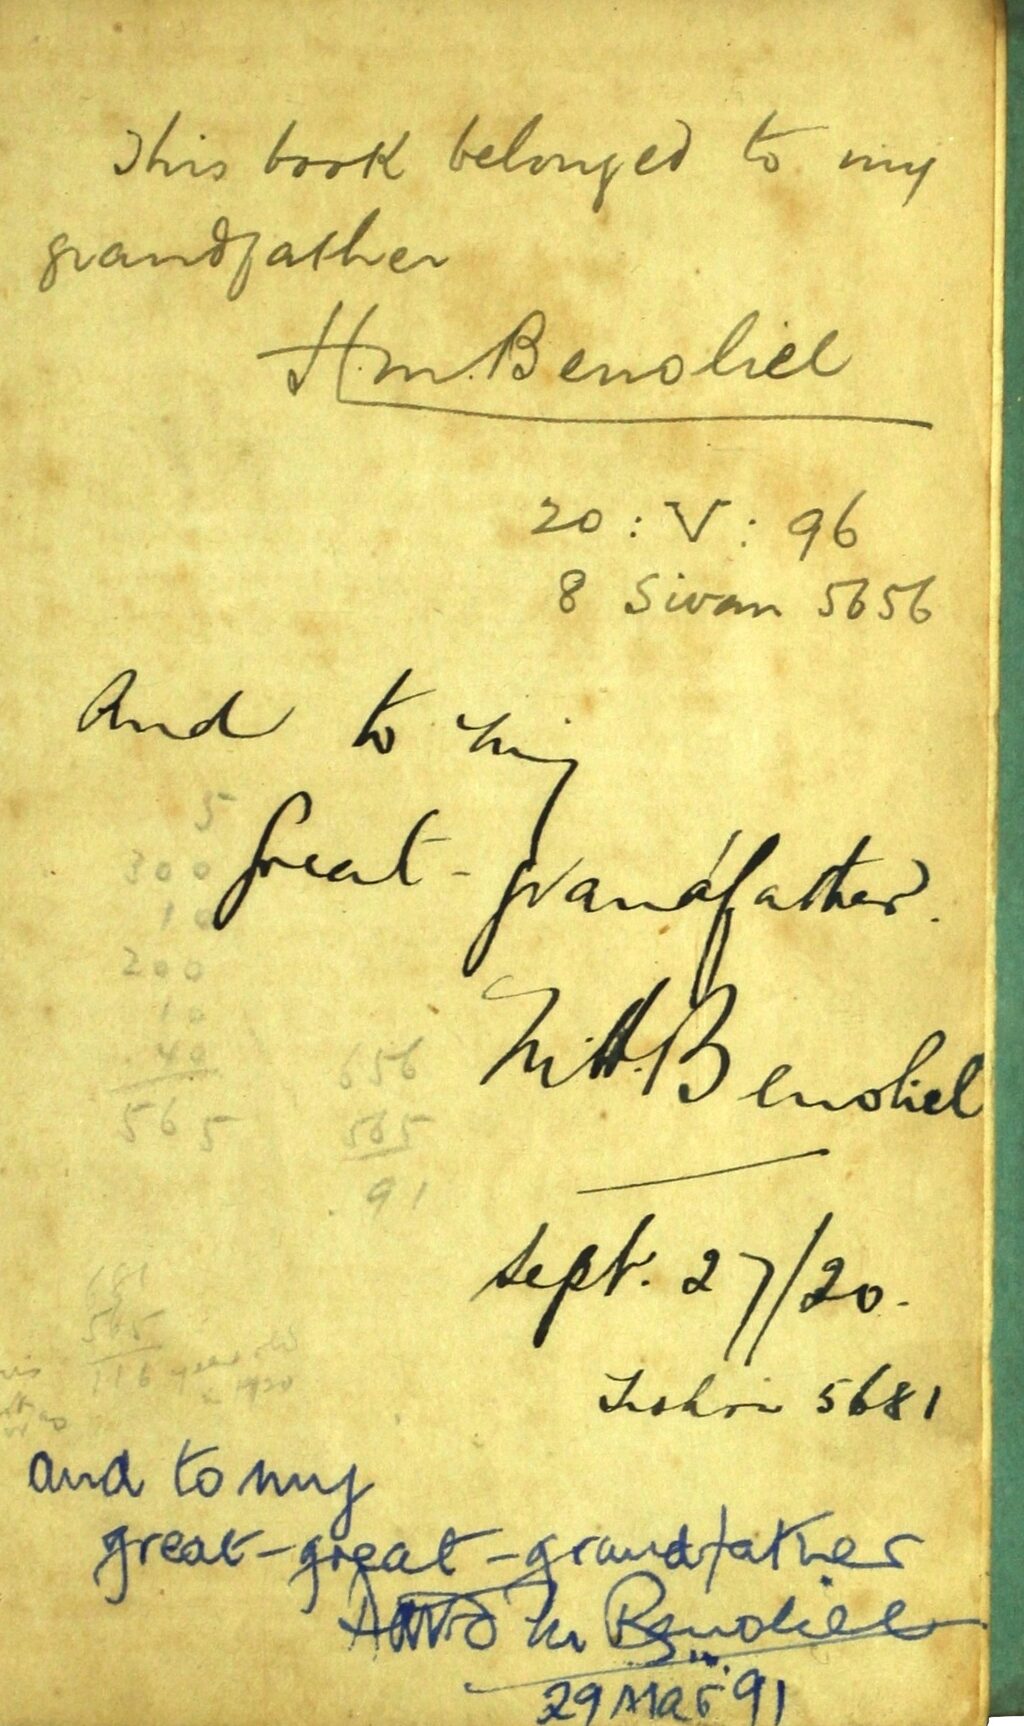 This book belonged to my
grandfather
H.M. Benoliel
20 : V : 96
8 Sivan 5656
And to my
Great-grandfather.
M.H. Benoliel
Sept. 27/20.
Tishri 5681
5
300
10
200
10
40
565
656
565
91
681
565
116 years old
1920
and to my
great-great-grandfather
M Benoliel
29 Mar 91